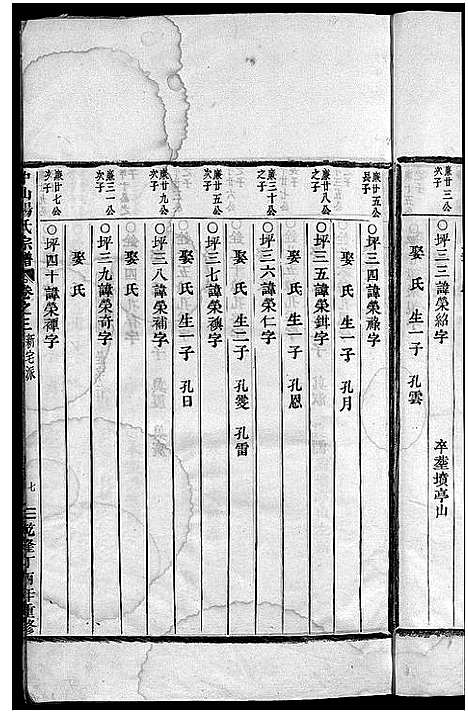 康廿三公
次子
○坪三三諱榮紹字
娶 氏 生一子 孔雲
卒葬墳亭山
康廿五公
長子
○坪三四諱榮祿字
娶 氏 生一子 孔月
康廿八公
之子
○坪三五諱榮錤字
娶 氏 生一子 孔恩
康三十公
之子
○坪三六諱榮仁字
娶 氏 生二子 孔燮 孔雷
康廿五公
次子
○坪三七諱榮禩字
娶 氏 生一子 孔日
康廿九公
次子
○坪三八諱榮補字
娶 氏
康三一公
次子
○坪三九諱榮奇字
娶 氏
康廿七公
次子
○坪四十諱榮禪字
中山湯氏宗譜
卷之三
新宅派
七
乾隆丁酉年重修